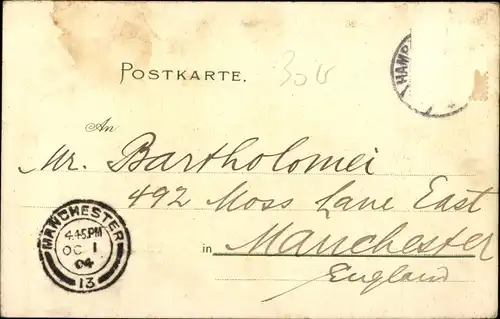 POSTKARTE.
HAMB
An
Mr. Bartholomei
492 Moss Lane East
in Manchester
England
MANCHESTER
4.45 PM
OC 1
04
13